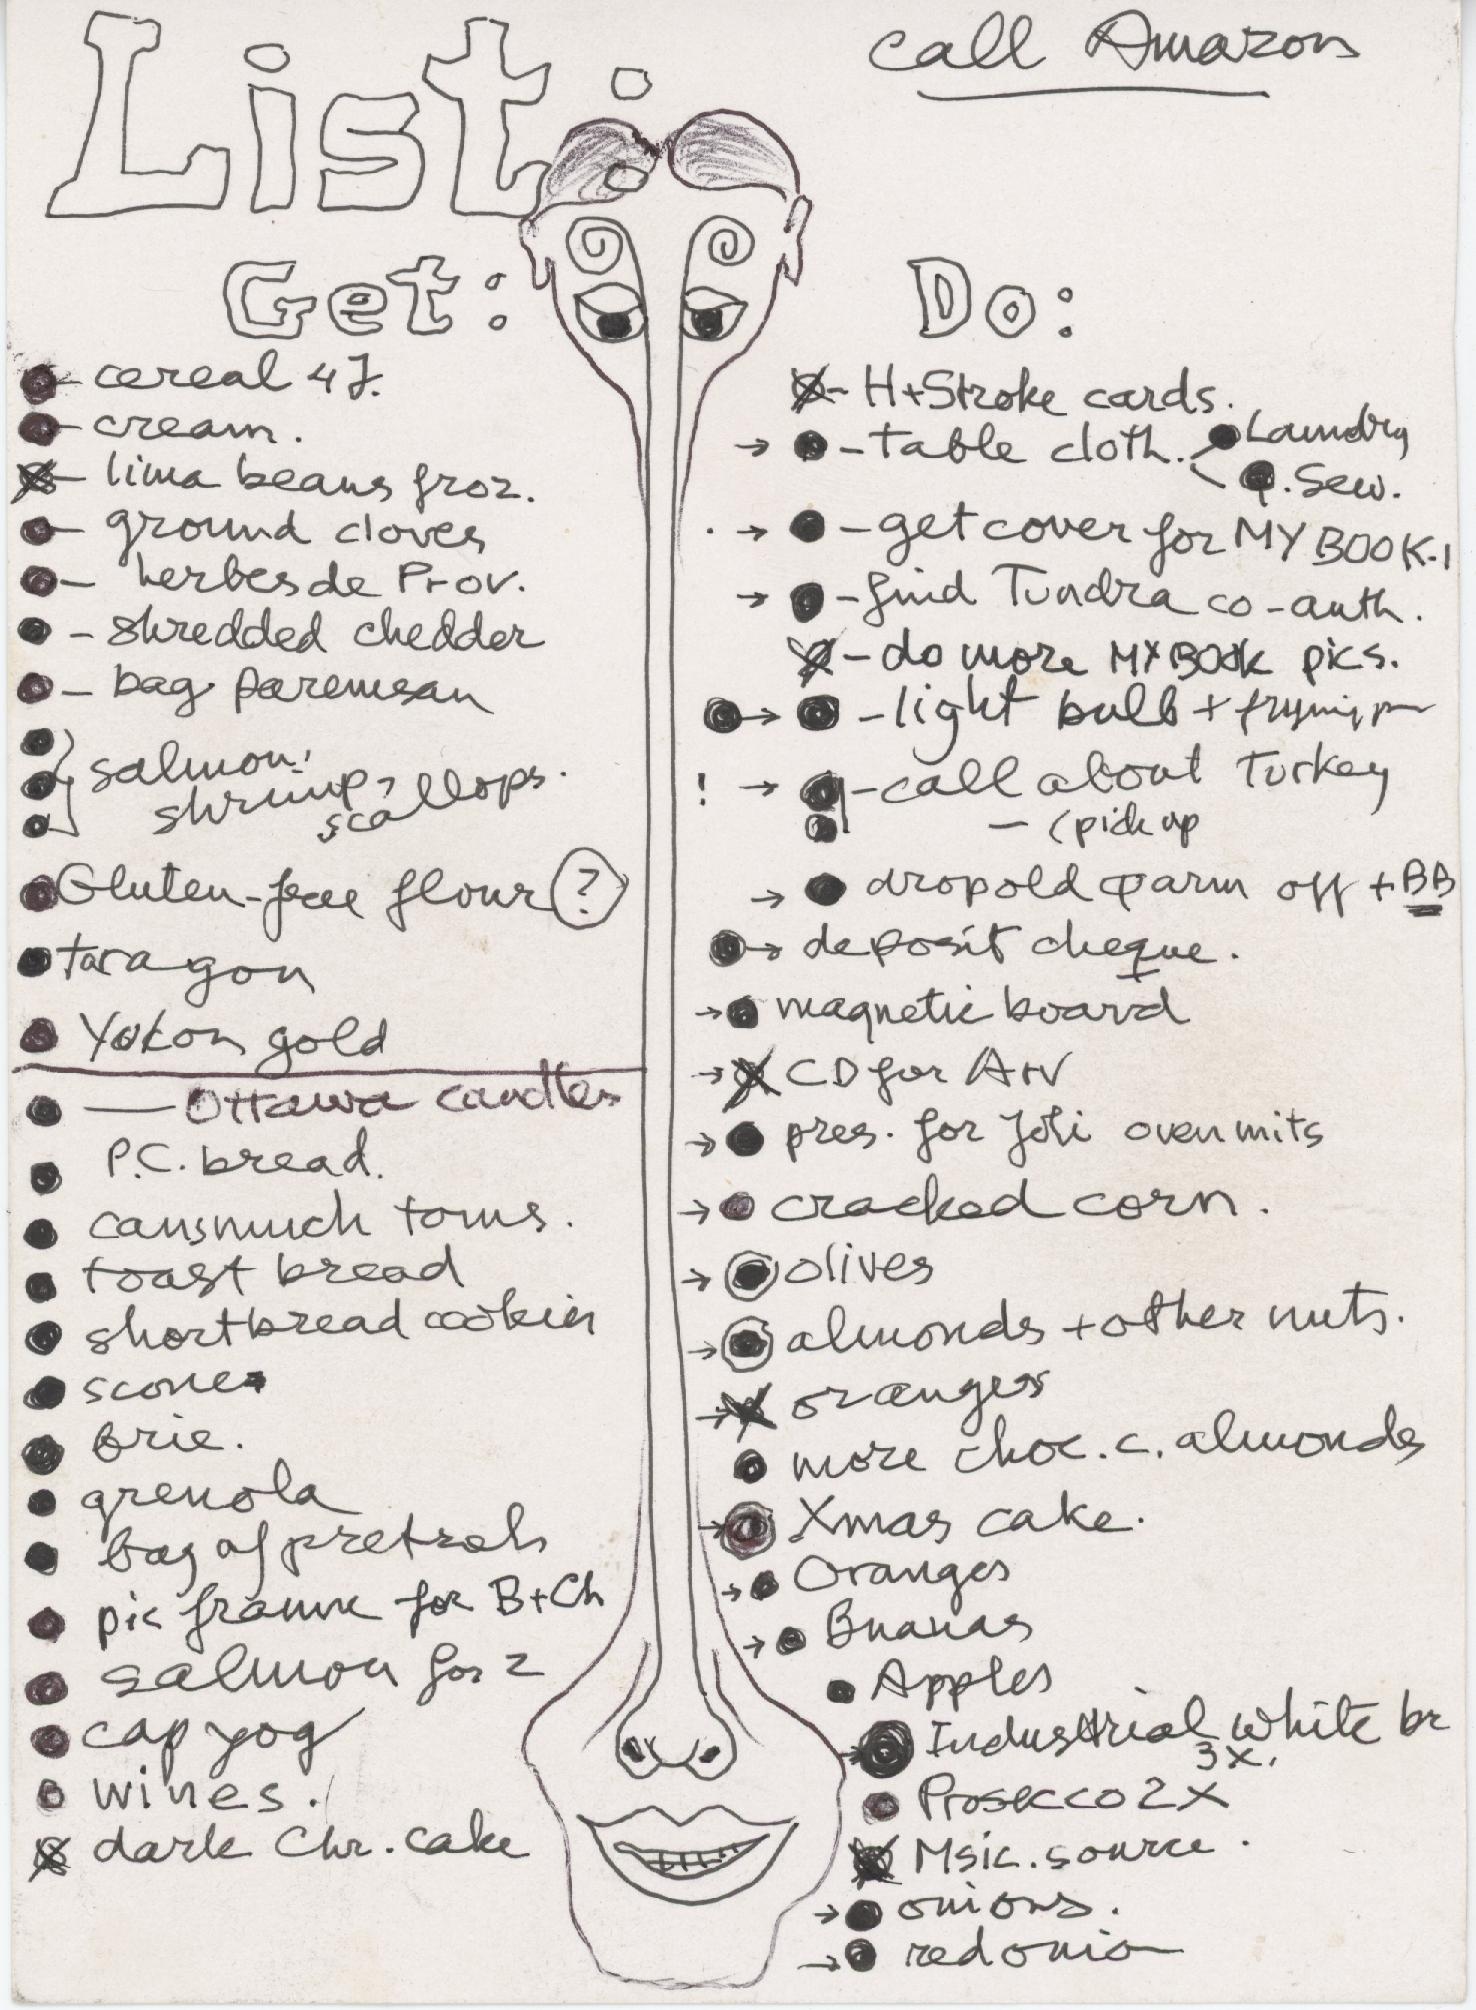 List:
call Amazon
Get:
cereal 4 J.
cream.
lima beans froz.
ground cloves
herbes de Prov.
shredded chedder
bag paremesan
salmon,
shrimp, scallops.
Gluten-free flour ?
taragon
Yukon gold
Ottawa candles
P.C. bread.
toast bread
shortbread cookies
scones
brie.
grenola
bag of pretzels
pic frame for B+Ch
salmon for 2
cap yog
wines.
dark Chr. cake
Do:
H+Stroke cards.
table cloth. Laundry
Sew.
get cover for MY BOOK-1
find Tundra co-auth.
do more MY BOOK pics.
light bulb + frying
! call about Turkey
(pick up
drop old parm off + BB
deposit cheque.
magnetic board
CD for
pres. for oven mits
cracked corn.
olives
almonds + other nuts.
oranges
more choc. c. almonds
Xmas cake.
Oranges
Bnanas
Apples
Industrial white br
3x.
Prosecco 2x
Msic. source.
onions.
red onion